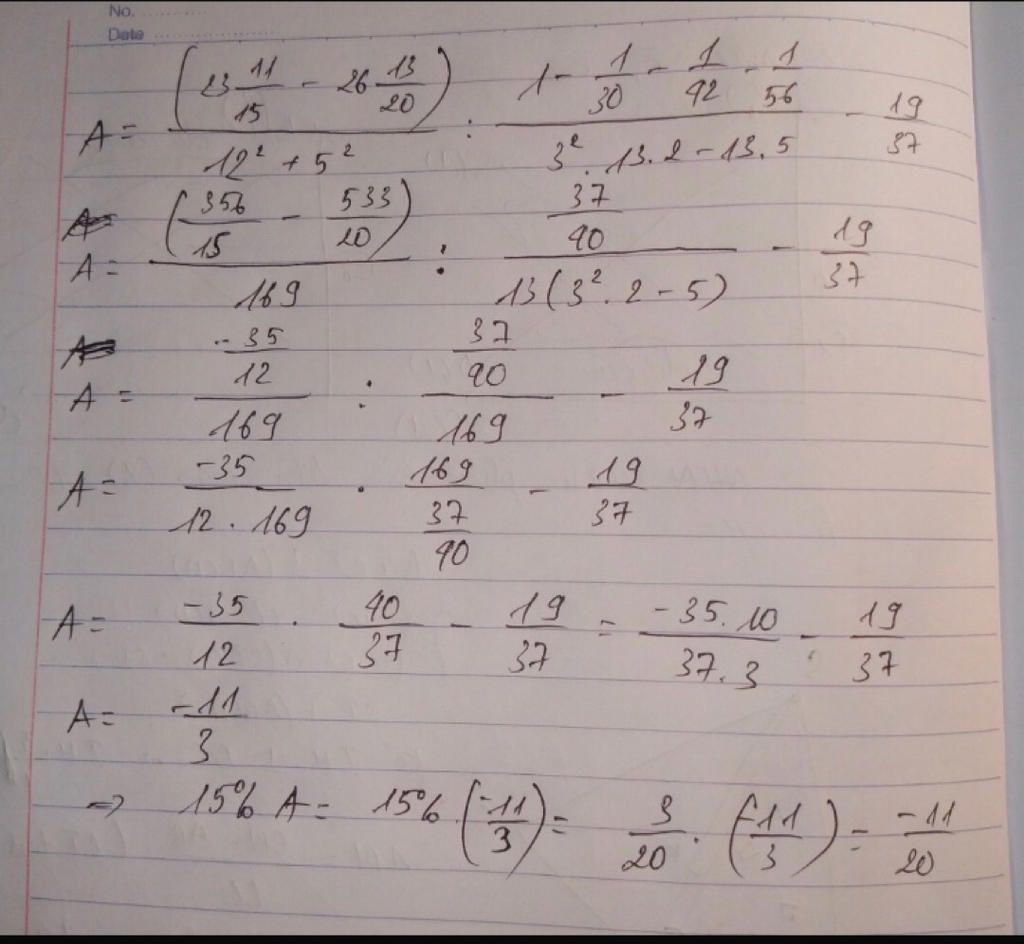 No.
Date
A = (23 11/15 - 26 13/20)/(12² + 5²) : (1 - 1/30 - 1/42 - 1/56)/(3² . 13.2 - 13.5) - 19/37
A = (356/15 - 533/20)/169 : (37/40)/(13(3².2 - 5)) - 19/37
A = (-35/12)/169 : (37/40)/169 - 19/37
A = -35/(12 . 169) . 169/(37/40) - 19/37
A = -35/12 . 40/37 - 19/37 = (-35.10)/(37.3) - 19/37
A = -11/3
=> 15% A = 15% . (-11/3) = 3/20 . (-11/3) = -11/20